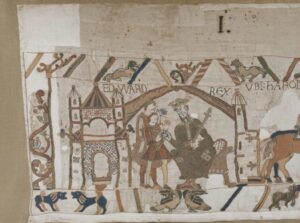 I.
EDWARD REX UBI HAROL